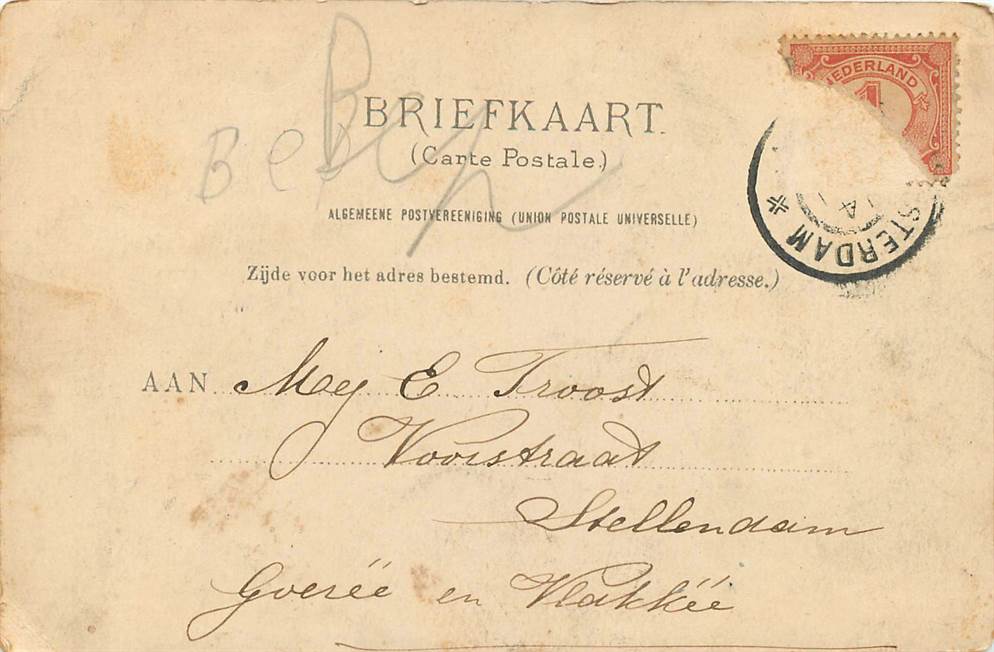 BRIEFKAART.
(Carte Postale.)
ALGEMEENE POSTVEREENIGING (UNION POSTALE UNIVERSELLE)
Zijde voor het adres bestemd. (Côté réservé à l'adresse.)
NEDERLAND
1
STERDAM
AAN Mej E Troost
Voorstraat
Stellendam
Goeréé en Vlakkëe